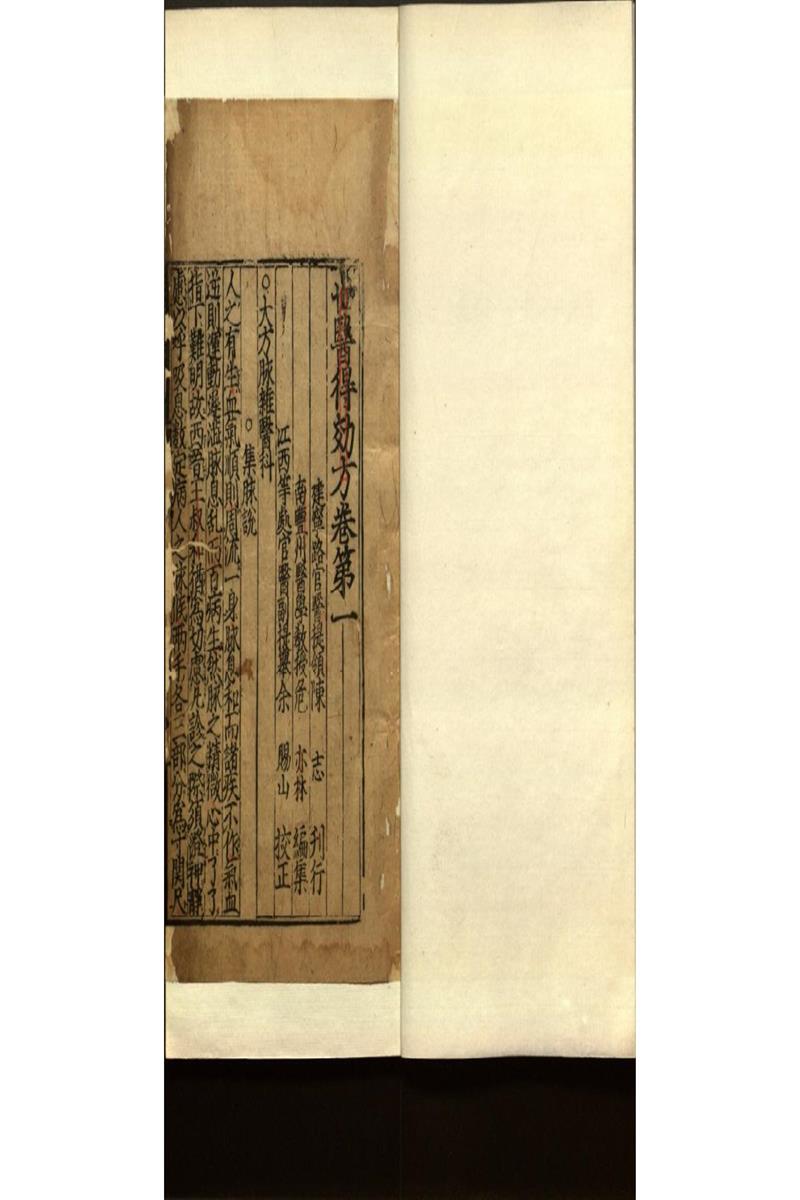 世醫得効方卷第一
建寧路官醫提領陳 志 刊行
南豐州醫學教授危 亦林 編集
江西等處官醫副提舉余 賜山 校正
○大方脉雜醫科
○集脉說
人之有生血氣順則周流一身脉息和而諸疾不作氣血
逆則運動澁脉息乱而百病生然脉之精微心中了了
指下難明故西晉王叔和猶爲切慮凡診之際須澄神靜
慮以呼吸息數定病人之脉候兩手各三部分爲寸関尺